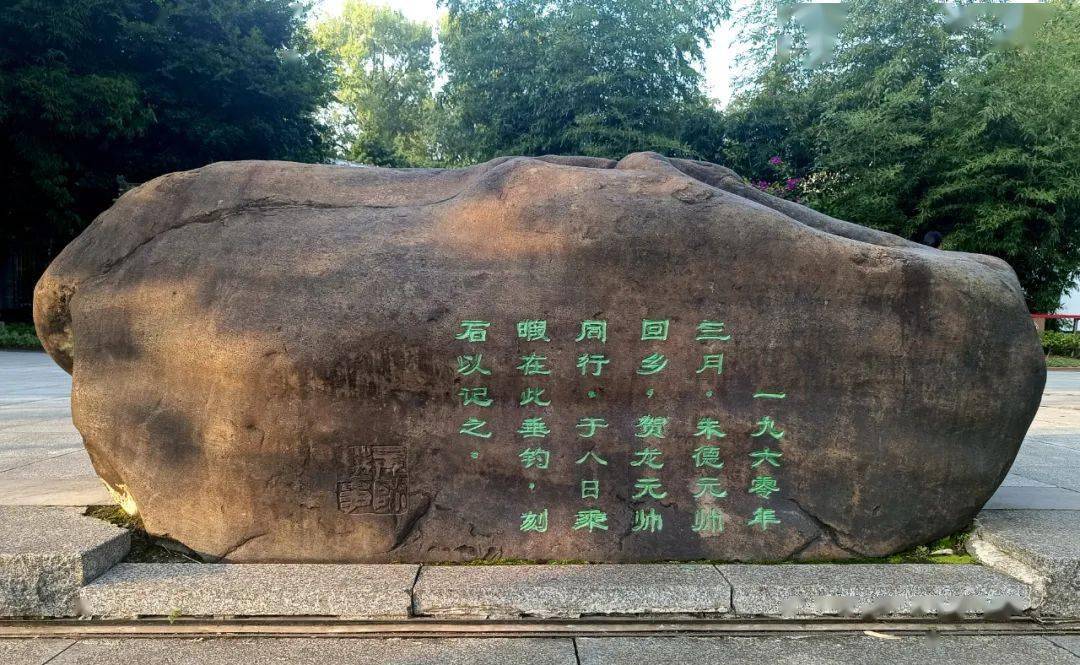 一九六零年
三月，朱德元帅
回乡，贺龙元帅
同行。于八日乘
暇在此垂钓，刻
石以记之。